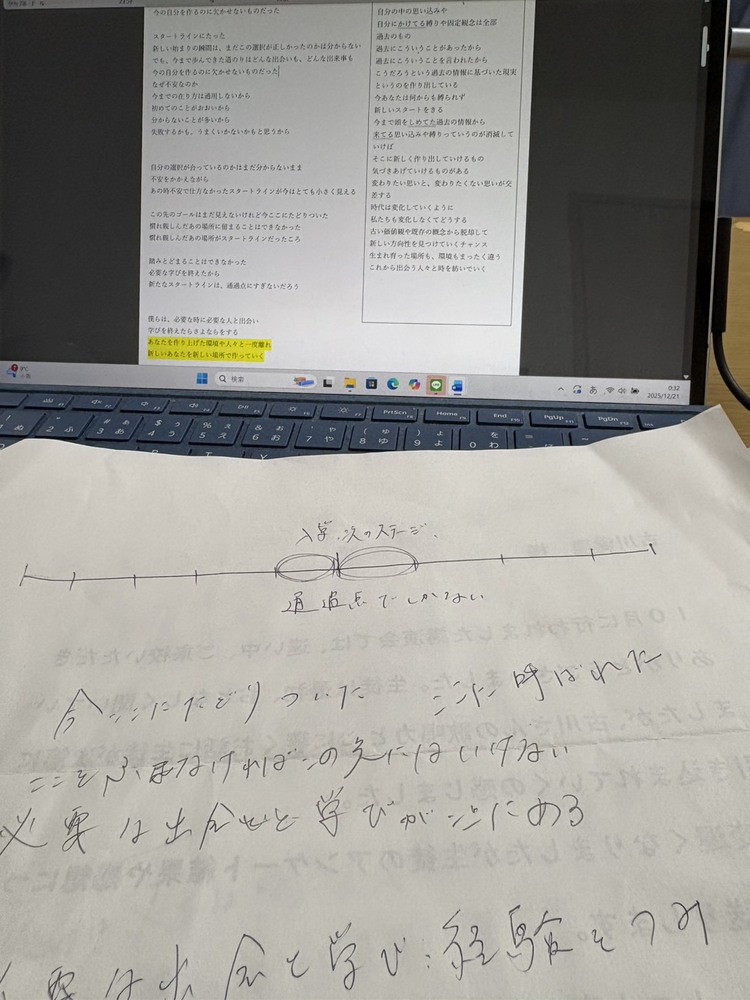 今の自分を作るのに欠かせないものだった
スタートラインにたった
新しい始まりの瞬間は、まだこの選択が正しかったのかは分からない
でも、今まで歩んできた道のりはどんな出会いも、どんな出来事も
今の自分を作るのに欠かせないものだった
なぜ不安なのか
今までの在り方は通用しないから
初めてのことがおおいから
分からないことが多いから
失敗するかも、うまくいかないかもと思うから
自分の選択が合っているのかはまだ分からないまま
不安をかかえながら
あの時不安で仕方なかったスタートラインが今はとても小さく見える
この先のゴールはまだ見えないけれど今ここにたどりついた
慣れ親しんだあの場所に留まることはできなかった
慣れ親しんだあの場所がスタートラインだったころ
踏みとどまることはできなかった
必要な学びを終えたから
新たなスタートラインは、通過点にすぎないだろう
僕らは、必要な時に必要な人と出会い
学びを終えたらさよならをする
あなたを作り上げた環境や人々と一度離れ
新しいあなたを新しい場所で作っていく
自分の中の思い込みや
自分にかけてる縛りや固定観念は全部
過去のもの
過去にこういうことがあったから
過去にこういうことを言われたから
こうだろうという過去の情報に基づいた現実
というのを作り出している
今あなたは何からも縛られず
新しいスタートをきる
今まで頭をしめてた過去の情報から
来てる思い込みや縛りっていうのが消滅して
いけば
そこに新しく作り出していけるもの
気づきあげていけるものがある
変わりたい思いと、変わりたくない思いが交
差する
時代は変化していくように
私たちも変化しなくてどうする
古い価値観や既存の概念から脱却して
新しい方向性を見つけていくチャンス
生まれ育った場所も、環境もまったく違う
これから出会う人々と時を紡いでいく
9℃
検索
あ
0:32
2025/12/21
PrtScn Home End PgUp PgDn
入学、次のステージ、
通過点でしかない
今ここにたどりついた ここに呼ばれた
ここをふまなければこの先にはいけない
必要な出会いと学びがここにある
必要な出会いと学び、経験をつみ